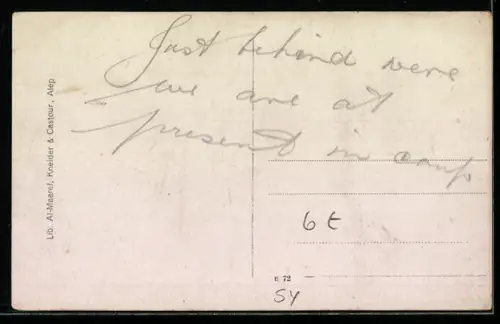 Just behind were
we are at
present in camp
Lib. Al-Maaref, Kneider & Castour, Alep
6 €
e 72
SY